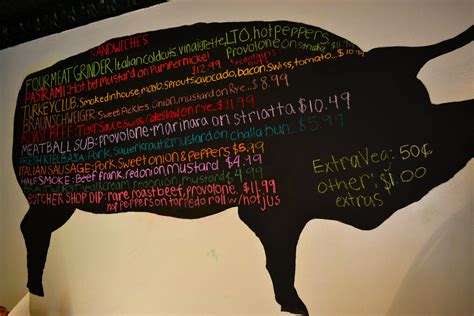 SANDWICHES
FOUR MEAT GRINDER: Italian coldcuts, vinaigrette, LTO, hot peppers
provolone on striatta $11.99
PASTRAMI: Hot by mustard on Pumpernickel $12.99
TURKEY CLUB: Smoked in house mayo, Sprouts, avocado, bacon, swiss, tomato... $
BRAUNSCHWEIGER: Sweet Pickles, Onion, mustard on rye... $8.99
Swiss, coleslaw on rye... $11.99
MEATBALL SUB: provolone + marinara on striatta $10.49
FRESH KIELBASA: Pork, Sauerkraut + mustard on challa bun... $5.99
ITALIAN SAUSAGE: Pork, Sweet onion & peppers $5.99
HALF SMOKE: Beef frank, red onion, mustard $4.49
red onion, mustard $4.99
BUTCHER SHOP DIP: rare roast beef, provolone, $11.99
hot pepper on torpedo roll w/ hot jus
Extra Veg: 50¢
other: $1.00
extras